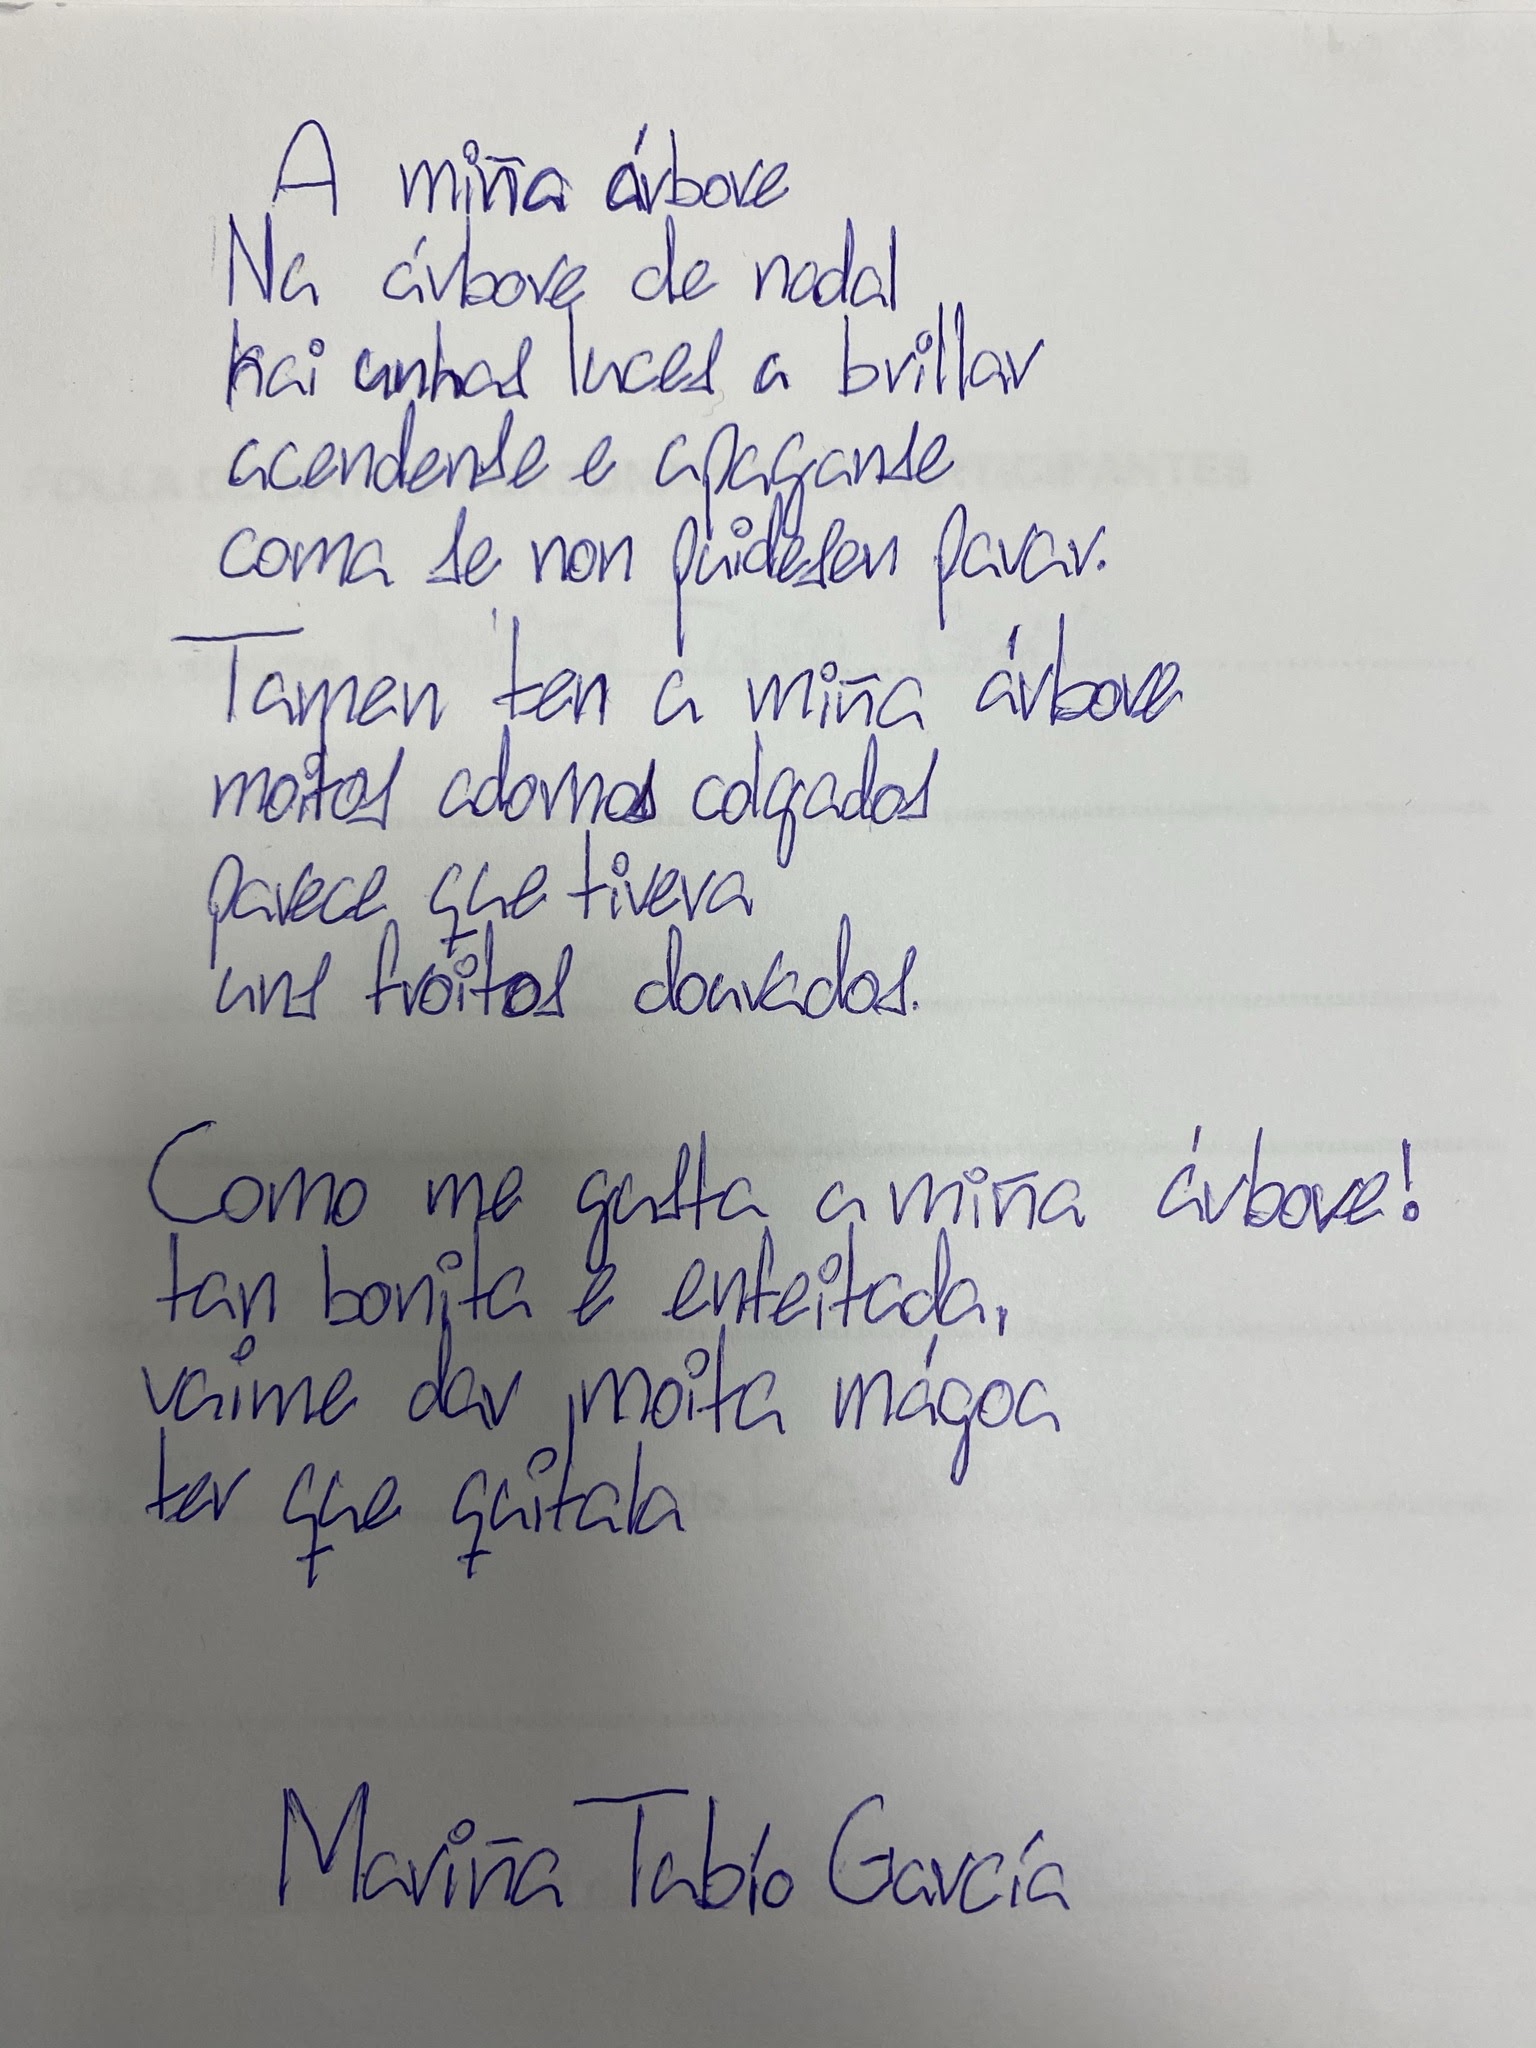 A miña árbore
Na árbore de nadal
hai unhas luces a brillar
acendense e apaganse
coma se non puidesen parar.
Tamen ten a miña árbore
moitos adornos colgados
parece que tivera
uns froitos dourados.
Como me gusta a miña árbore!
tan bonita e enfeitada,
vaime dar moita mágoa
ter que quitala
Mariña Tabío García